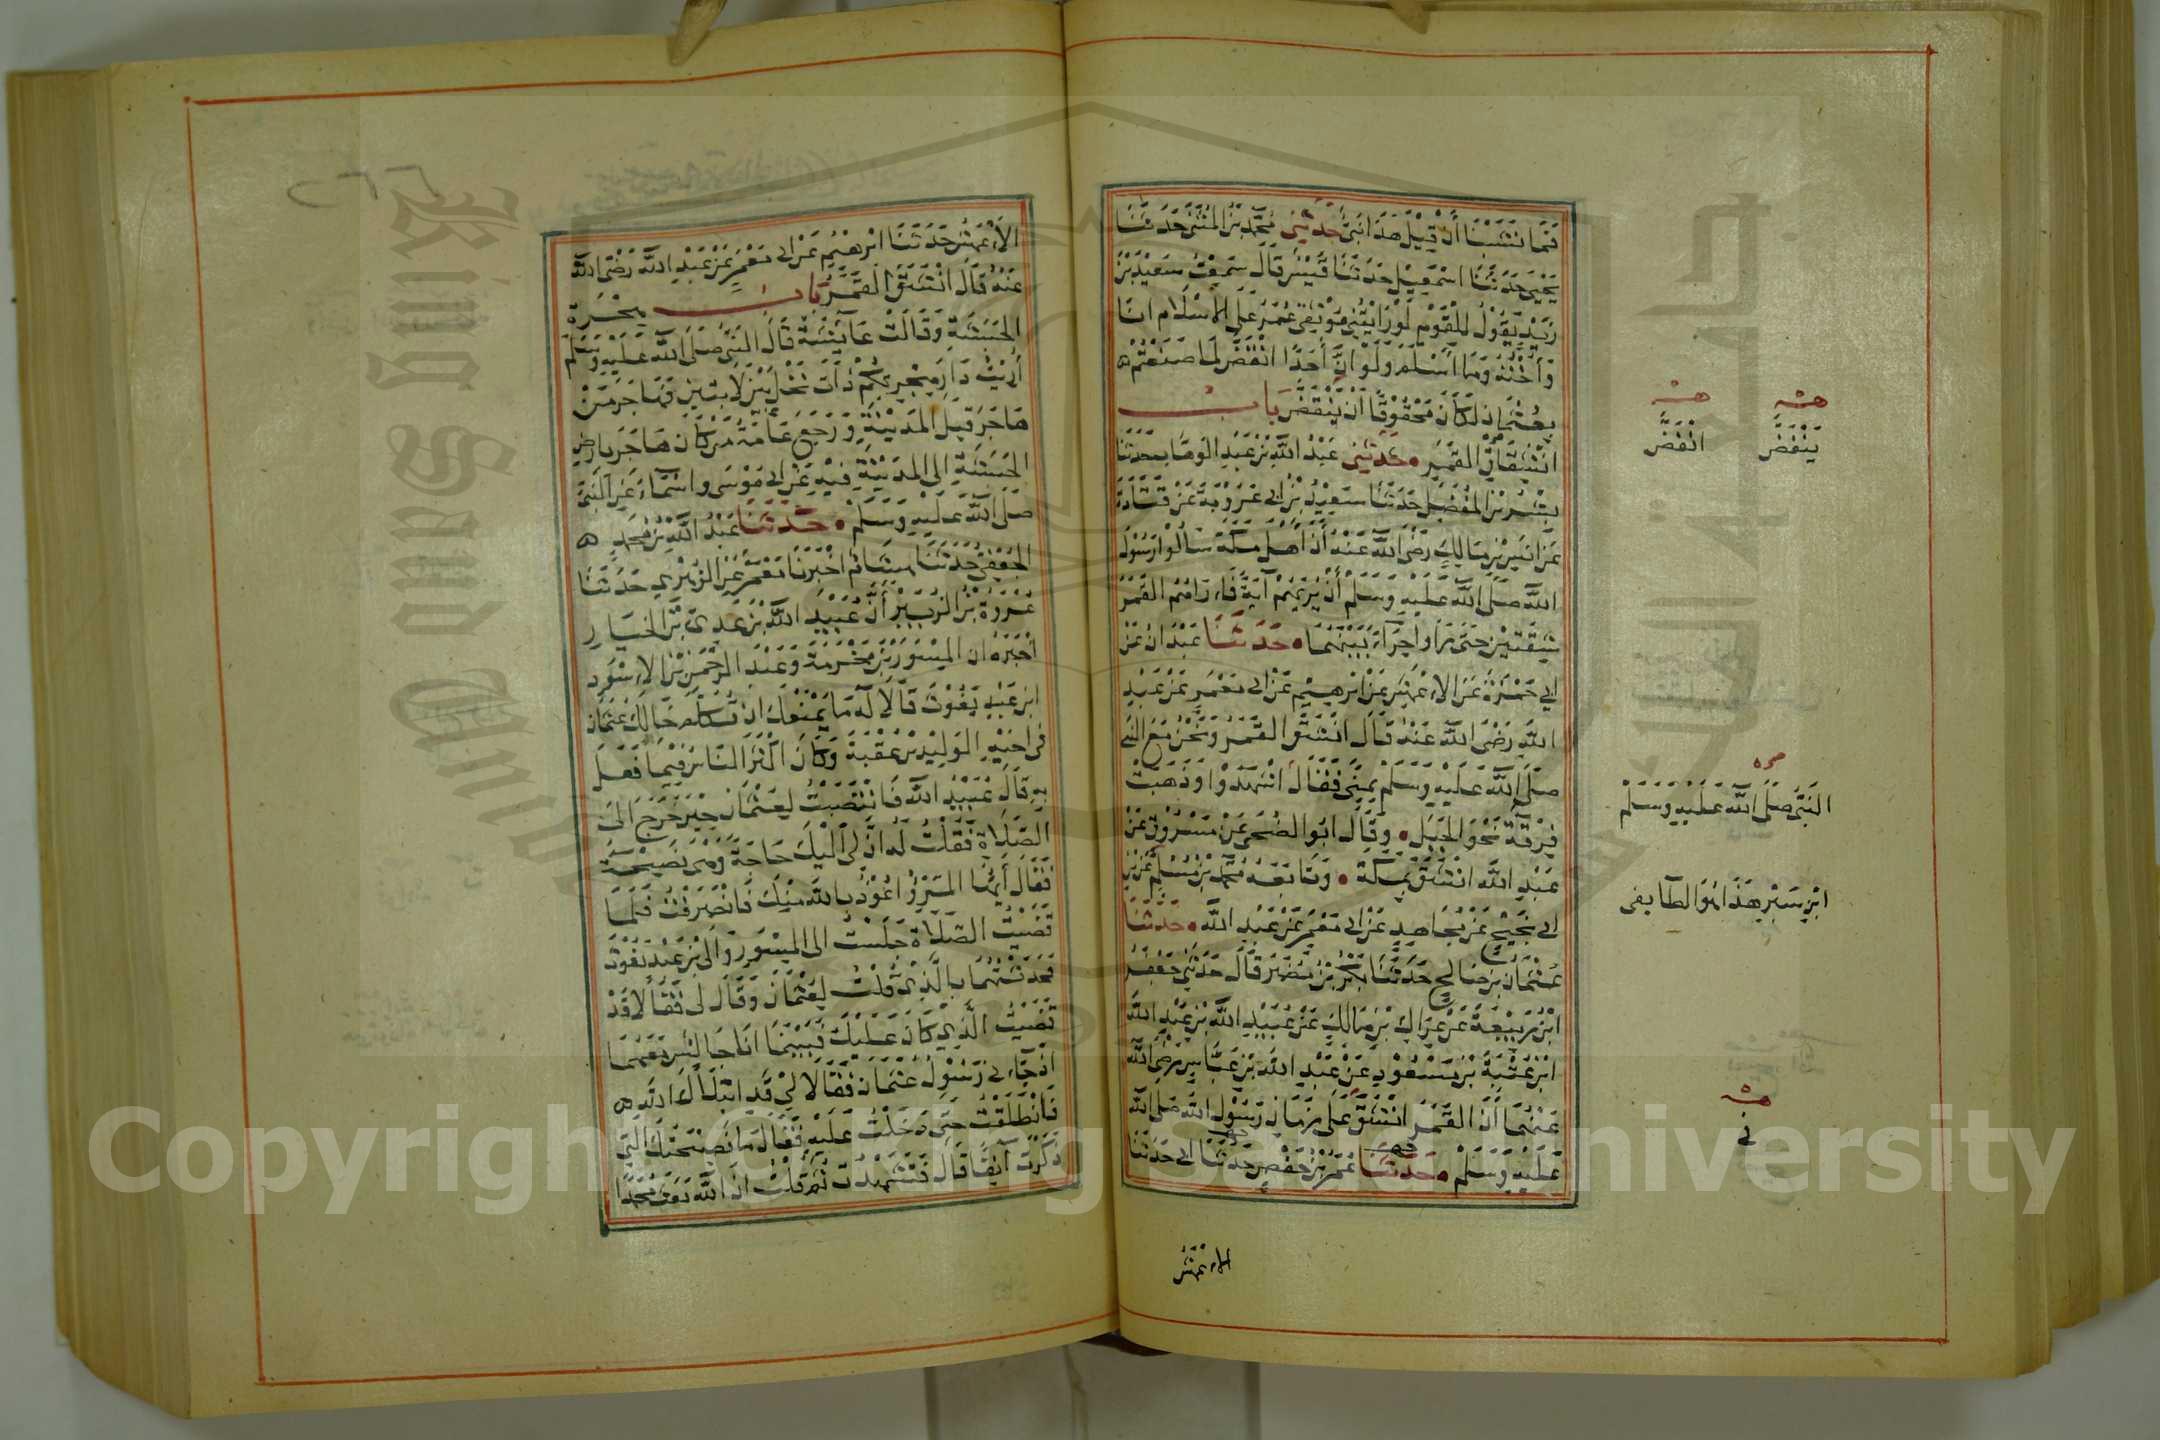 فَمَا نَشَبْنَا أَنْ قِيْلَ هَذَا نَبِيٌّ حَدَّثَنِي مُحَمَّدُ بْنُ الْمُثَنَّى حَدَّثَنَا
يَحْيَى حَدَّثَنَا اسْمَعِيْل حَدَّثَنَا قَيْسٌ قَالَ سَمِعْتُ سَعِيْدَ بْنَ
زَيْدٍ يَقُوْلُ لِلْقَوْمِ لَوْ رَأَيْتُنِي مُوْثِقِي عُمَرُ عَلَى الْاِسْلَامِ انَا
وَأُخْتُهُ وَمَا أَسْلَمَ وَلَوْ انَّ أُحُدًا انْقَضَّ لِمَا صَنَعْتُمْ ه
بِعُثْمَانَ لَكَانَ مَحْقُوْقًا أَنْ يَنْقَضَّ بَاب
انْشِقَاقُ القَمَرِ • حَدَّثَنِي عَبْدُ اللَّهِ بْنُ عَبْدِ الوَهَّابِ حَدَّثَنَا
بِشْرُ بْنُ المُفَضَّلِ حَدَّثَنَا سَعِيْدُ بْنُ أَبِي عَرُوْبَةَ عَنْ قَتَادَةَ
عَنْ انَسِ بْنِ مَالِكٍ رَضِيَ اللَّهُ عَنْهُ أَنَّ أَهْلَ مَكَّةَ سَالُوا رَسُوْلَ
اللَّهِ صَلَّى اللَّهُ عَلَيْهِ وَسَلَّمْ أَنْ يُرِيَهُمْ آيَةً فَارَاهُمُ القَمَرَ
شِقَّتَيْنِ حَتَّى رَاوا حِرَآءَ بَيْنَهُمَا • حَدَّثَنَا عَبْدَانُ عَنْ
ابِي حَمْزَةَ عَنِ الاعْمَشِ عَنْ ابْرهِيْمِ عَنْ ابِي مَعْمَرٍ عَنْ عَبْدِ
اللَّهِ رَضِيَ اللَّهُ عَنْهُ قَالَ انْشَقَّ القَمَرُ وَنَحْنُ مَعَ النَّبِي
صَلَّى اللَّهُ عَلَيْهِ وَسَلَّمْ بِمِنًى فَقَالَ اشْهَدُوْا وَذَهَبَتْ
فِرْقَةٌ نَحْوَ الجَبَلِ • وَقَالَ ابُو الضُّحَى عَنْ مَسْرُوْقٍ عَنْ
عَبْدِ اللَّهِ انْشَقَّ بِمَكَّةَ • وَتَابَعَهُ مُحَمَّدُ بْنُ مُسْلِمٍ عَنْ ابْنِ
ابِي نَجِيْحٍ عَنْ مُجَاهِدٍ عَنْ ابِي مَعْمَرٍ عَنْ عَبْدِ اللَّهِ • حَدَّثَنَا
عُثْمَانُ بْنُ صَالِحٍ حَدَّثَنَا بَكْرُ بْنُ مُضَرَ قَالَ حَدَّثَنِي جَعْفَرُ
ابْنُ رَبِيْعَةَ عَنْ عِرَاكِ بْنِ مَالِكٍ عَنْ عُبَيْدِ اللَّهِ بْنِ عَبْدِ اللَّهِ
ابْنِ عُتْبَةَ بْنِ مَسْعُوْدٍ عَنْ عَبْدِ اللَّهِ بْنِ عَبَّاسٍ رَضِيَ اللَّهُ
عَنْهُمَا أَنَّ القَمَرَ انْشَقَّ عَلَى زَمَانِ رَسُوْلِ اللَّهِ صَلَّى اللَّهُ
عَلَيْهِ وَسَلَّمْ • حَدَّثَنَا عُمَرُ بْنُ حَفْصٍ حَدَّثَنَا ابِي حَدَّثَنَا
الاعْمَشُ
يَنْقَضَّ
انْفَضَّ
النَّبِيِّ صَلَّى اللَّهُ عَلَيْهِ وَسَلَّمْ
هَذَا هُوَ الطَّآيِفِي
فِي
الاَعْمَشُ حَدَّثَنَا ابْرهِيْمُ عَنْ ابِي مَعْمَرٍ عَنْ عَبْدِ اللَّهِ رَضِيَ اللَّهُ
عَنْهُ قَالَ انْشَقَّ القَمَرُ بَاب هِجْرَةِ
الحَبَشَةِ وَقَالَتْ عَآيِشَةُ قَالَ النَّبِيُّ صَلَّى اللَّهُ عَلَيْهِ وَسَلَّمَ
أُرِيْتُ دَارَ هِجْرَتِكُمْ ذَاتَ نَخْلٍ بَيْنَ لَابَتَيْنِ فَهَاجَرَ مَنْ
هَاجَرَ قِبَلَ المَدِيْنَةِ وَرَجَعَ عَامَّةُ مَنْ كَانَ هَاجَرَ بِارْضِ
الحَبَشَةِ الى المَدِيْنَةِ فِيْهِ عَنْ ابِي مُوْسَى وَاسْمَاءَ عَنِ النَّبِيِّ
صَلَّى اللَّهُ عَلَيْهِ وَسَلَّمْ • حَدَّثَنَا عَبْدُ اللَّهِ بْنُ مُحَمَّدٍ ه
الجُعْفِيُّ حَدَّثَنَا هِشَامٌ اخْبَرَنَا مَعْمَرٌ عَنِ الزُّهْرِي حَدَّثَنَا
عُرْوَةُ بْنُ الزُّبَيْرِ أَنَّ عُبَيْدَ اللَّهِ بْنَ عَدِيِّ بْنِ الخِيَارِ
اخْبَرَهُ ان المِسْوَرَ بْنَ مَخْرَمَةَ وَعَبْدَ الرَّحْمَنِ بْنَ الاسْوَدِ
ابْنِ عَبْدِ يَغُوْثَ قَالَا لَهُ مَا يَمْنَعُكَ انْ تُكَلِّمَ خَالَكَ عُثْمَانَ
فِي اخِيْهِ الوَلِيْدِ بْنِ عُقْبَةَ وَكَانَ اكْثَرَ النَّاسُ فِيْمَا فَعَلَ
بِهِ قَالَ عُبَيْدُ اللَّهِ فَانْتَصَبْتُ لِعُثْمَانَ حِيْنَ خَرَجَ الَى
الصَّلَاةِ فَقُلْتُ لَهُ انَّ لِي الَيْكَ حَاجَةً وَهِيَ نَصِيْحَةٌ
فَقَالَ أَيُّهَا المَرْؤُ اعُوْذُ بِاللَّهِ مِنْكَ فَانْصَرَفْتُ فَلَمَّا
قَضَيْتُ الصَّلَاةَ جَلَسْتُ الى المِسْوَرِ وَالَى ابْنِ عَبْدِ يَغُوْثَ
فَحَدَّثْتُهُمَا بِالَّذِي قُلْتُ لِعُثْمَانَ وَقَالَ لِي فَقَالَا قَدْ
قَضَيْتَ الَّذِيْ كَانَ عَلَيْكَ فَبَيْنَمَا انَا جَالِسٌ مَعَهُمَا
اذْ جَآءَنِي رَسُوْلُ عُثْمَانَ فَقَالَا لِيْ قَدِ ابْتَلَاكَ اللَّهُ ه
فَانْطَلَقْتُ حَتَّى دَخَلْتُ عَلَيْهِ فَقَالَ مَا نَصِيْحَتُكَ الَّتِي
ذَكَرْتَ آنِفًا قَالَ فَتَشَهَّدْتُ ثُمَّ قُلْتُ انَّ اللَّهَ بَعَثَ مُحَمَّدًا
٢٦٦
King Saud University
Copyright © King Saud University